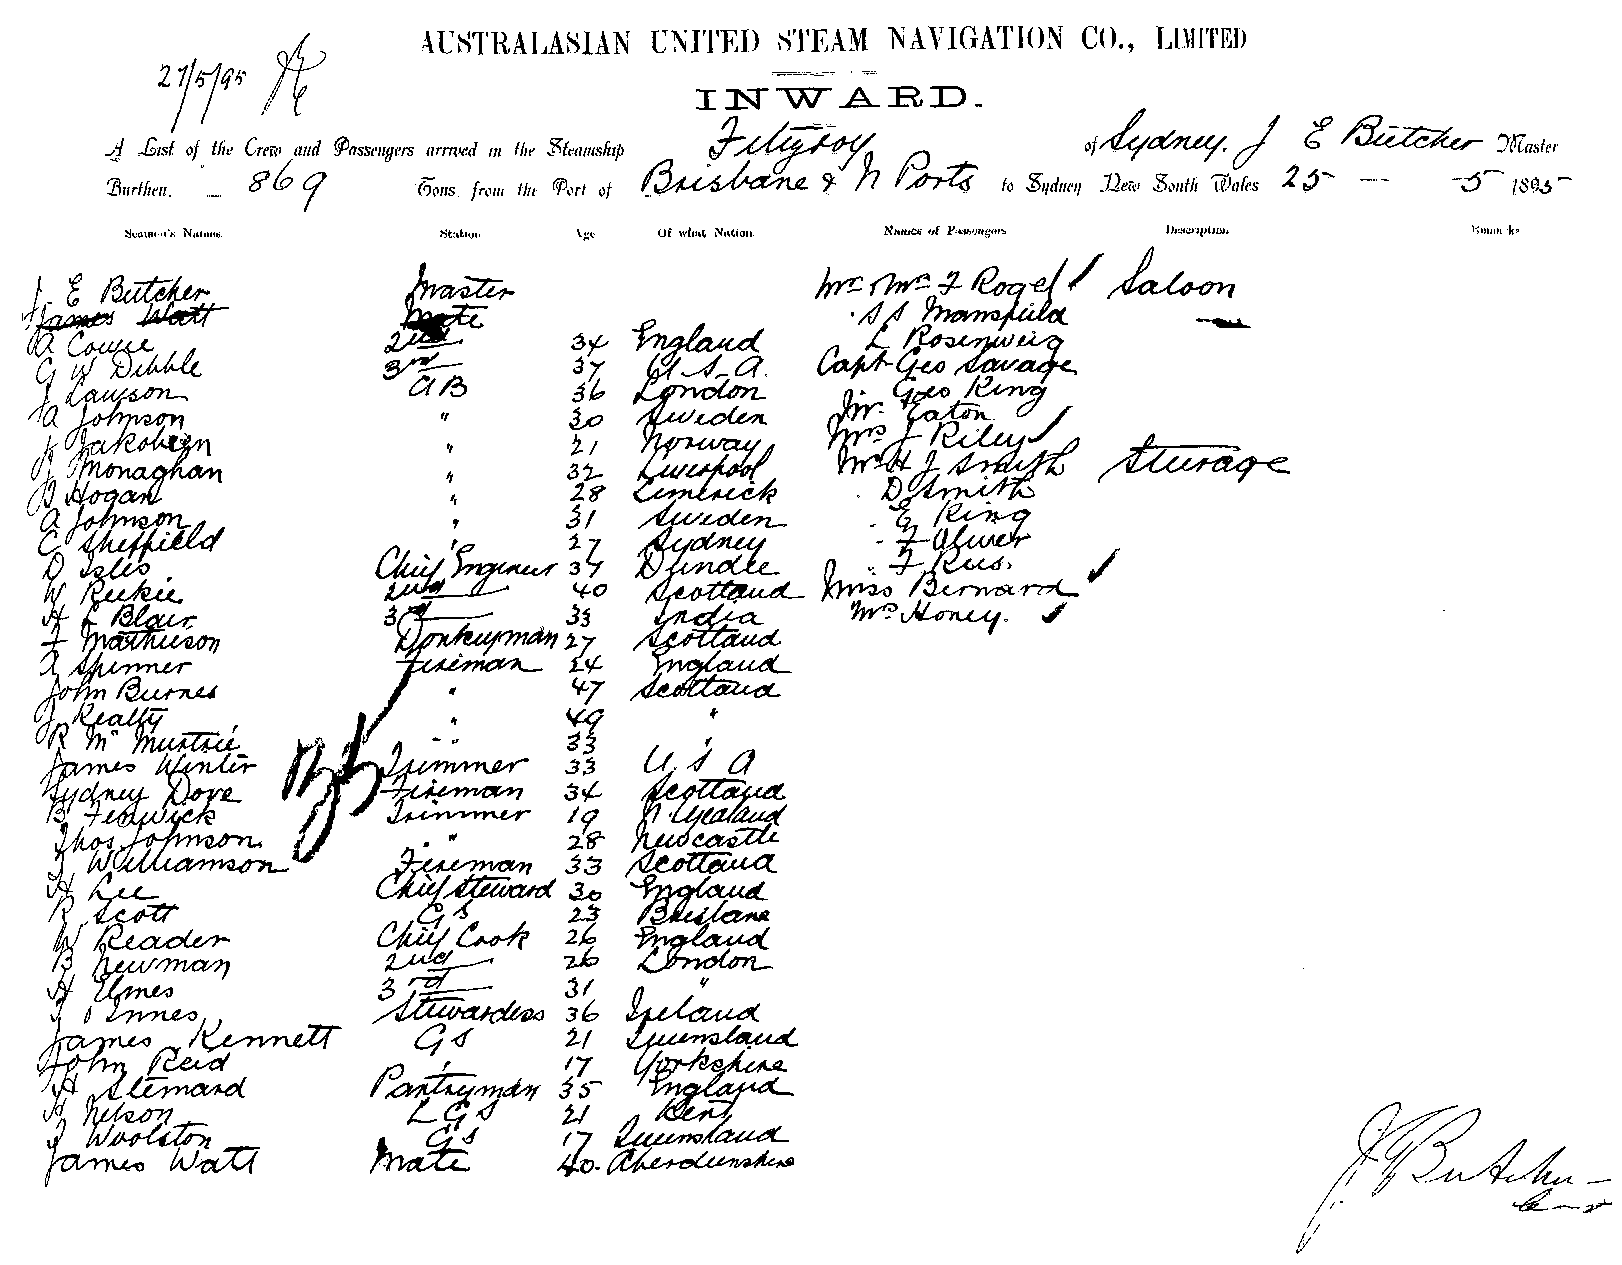 AUSTRALASIAN UNITED STEAM NAVIGATION CO., LIMITED
27/5/95
INWARD.
A List of the Crew and Passengers arrived in the Steamship Fitzroy of Sydney. J E Butcher Master
Burthen. 869 Tons from the Port of Brisbane & N Ports to Sydney New South Wales 25 - 5 1895
Seamen's Names. Station Age Of what Nation. Names of Passengers Description Remarks
J. E Butcher Master Mr & Mrs F Rogel Saloon
James Watt Mate S S Mansfield
A Cowie 2nd 34 England L Rosenweig
G W Dibble 3rd 37 U.S.A. Capt Geo Savage
J Lawson AB 36 London Geo King
A Johnson " 30 Sweden Mr. Eaton
J Jakobsen " 21 Norway Mrs J Riley
J Monaghan " 32 Liverpool Mr H J Smith Steerage
P Hogan " 28 Limerick D Smith
A Johnson " 31 Sweden E King
C Sheffield " 27 Sydney F Oliver
D Isles Chief Engineer 37 Dundee " F Rees.
W Reekie 2nd 40 Scotland Miss Bernard
H L Blair 3rd 33 India Mrs Honey.
F Mathieson Donkeyman 27 Scotland
A Spinner Fireman 24 England
John Burnes " 47 Scotland
J Realty " 49 "
R Mc Murtrie " 33 "
James Winter Trimmer 33 U S A
Sydney Dove Fireman 34 Scotland
B Fenwick Trimmer 19 N Zealand
Thos Johnson " 28 Newcastle
J Williamson Fireman 33 Scotland
H Lee Chief Steward 30 England
R Scott G S 23 Brisbane
W Reader Chief Cook 26 England
B Newman 2nd 26 London
H Elmes 3rd 31 "
Innes Stewardess 36 Ireland
James Kennett G S 21 Queensland
John Reid " 17 Yorkshire
H Stemard Pantryman 35 England
H Nelson L G S 21 Kent
J Woolston G S 17 Queensland
James Watt Mate 40. Aberdeenshire
J E Butcher